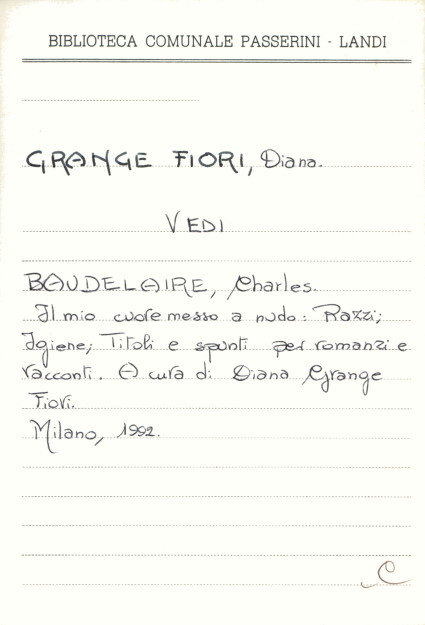 BIBLIOTECA COMUNALE PASSERINI - LANDI
GRANGE FIORI, Diana.
VEDI
BAUDELAIRE, Charles.
Il mio cuore messo a nudo: Razzi;
Igiene; Titoli e spunti per romanzi e
racconti. A cura di Diana Grange
Fiori.
Milano, 1992.
C